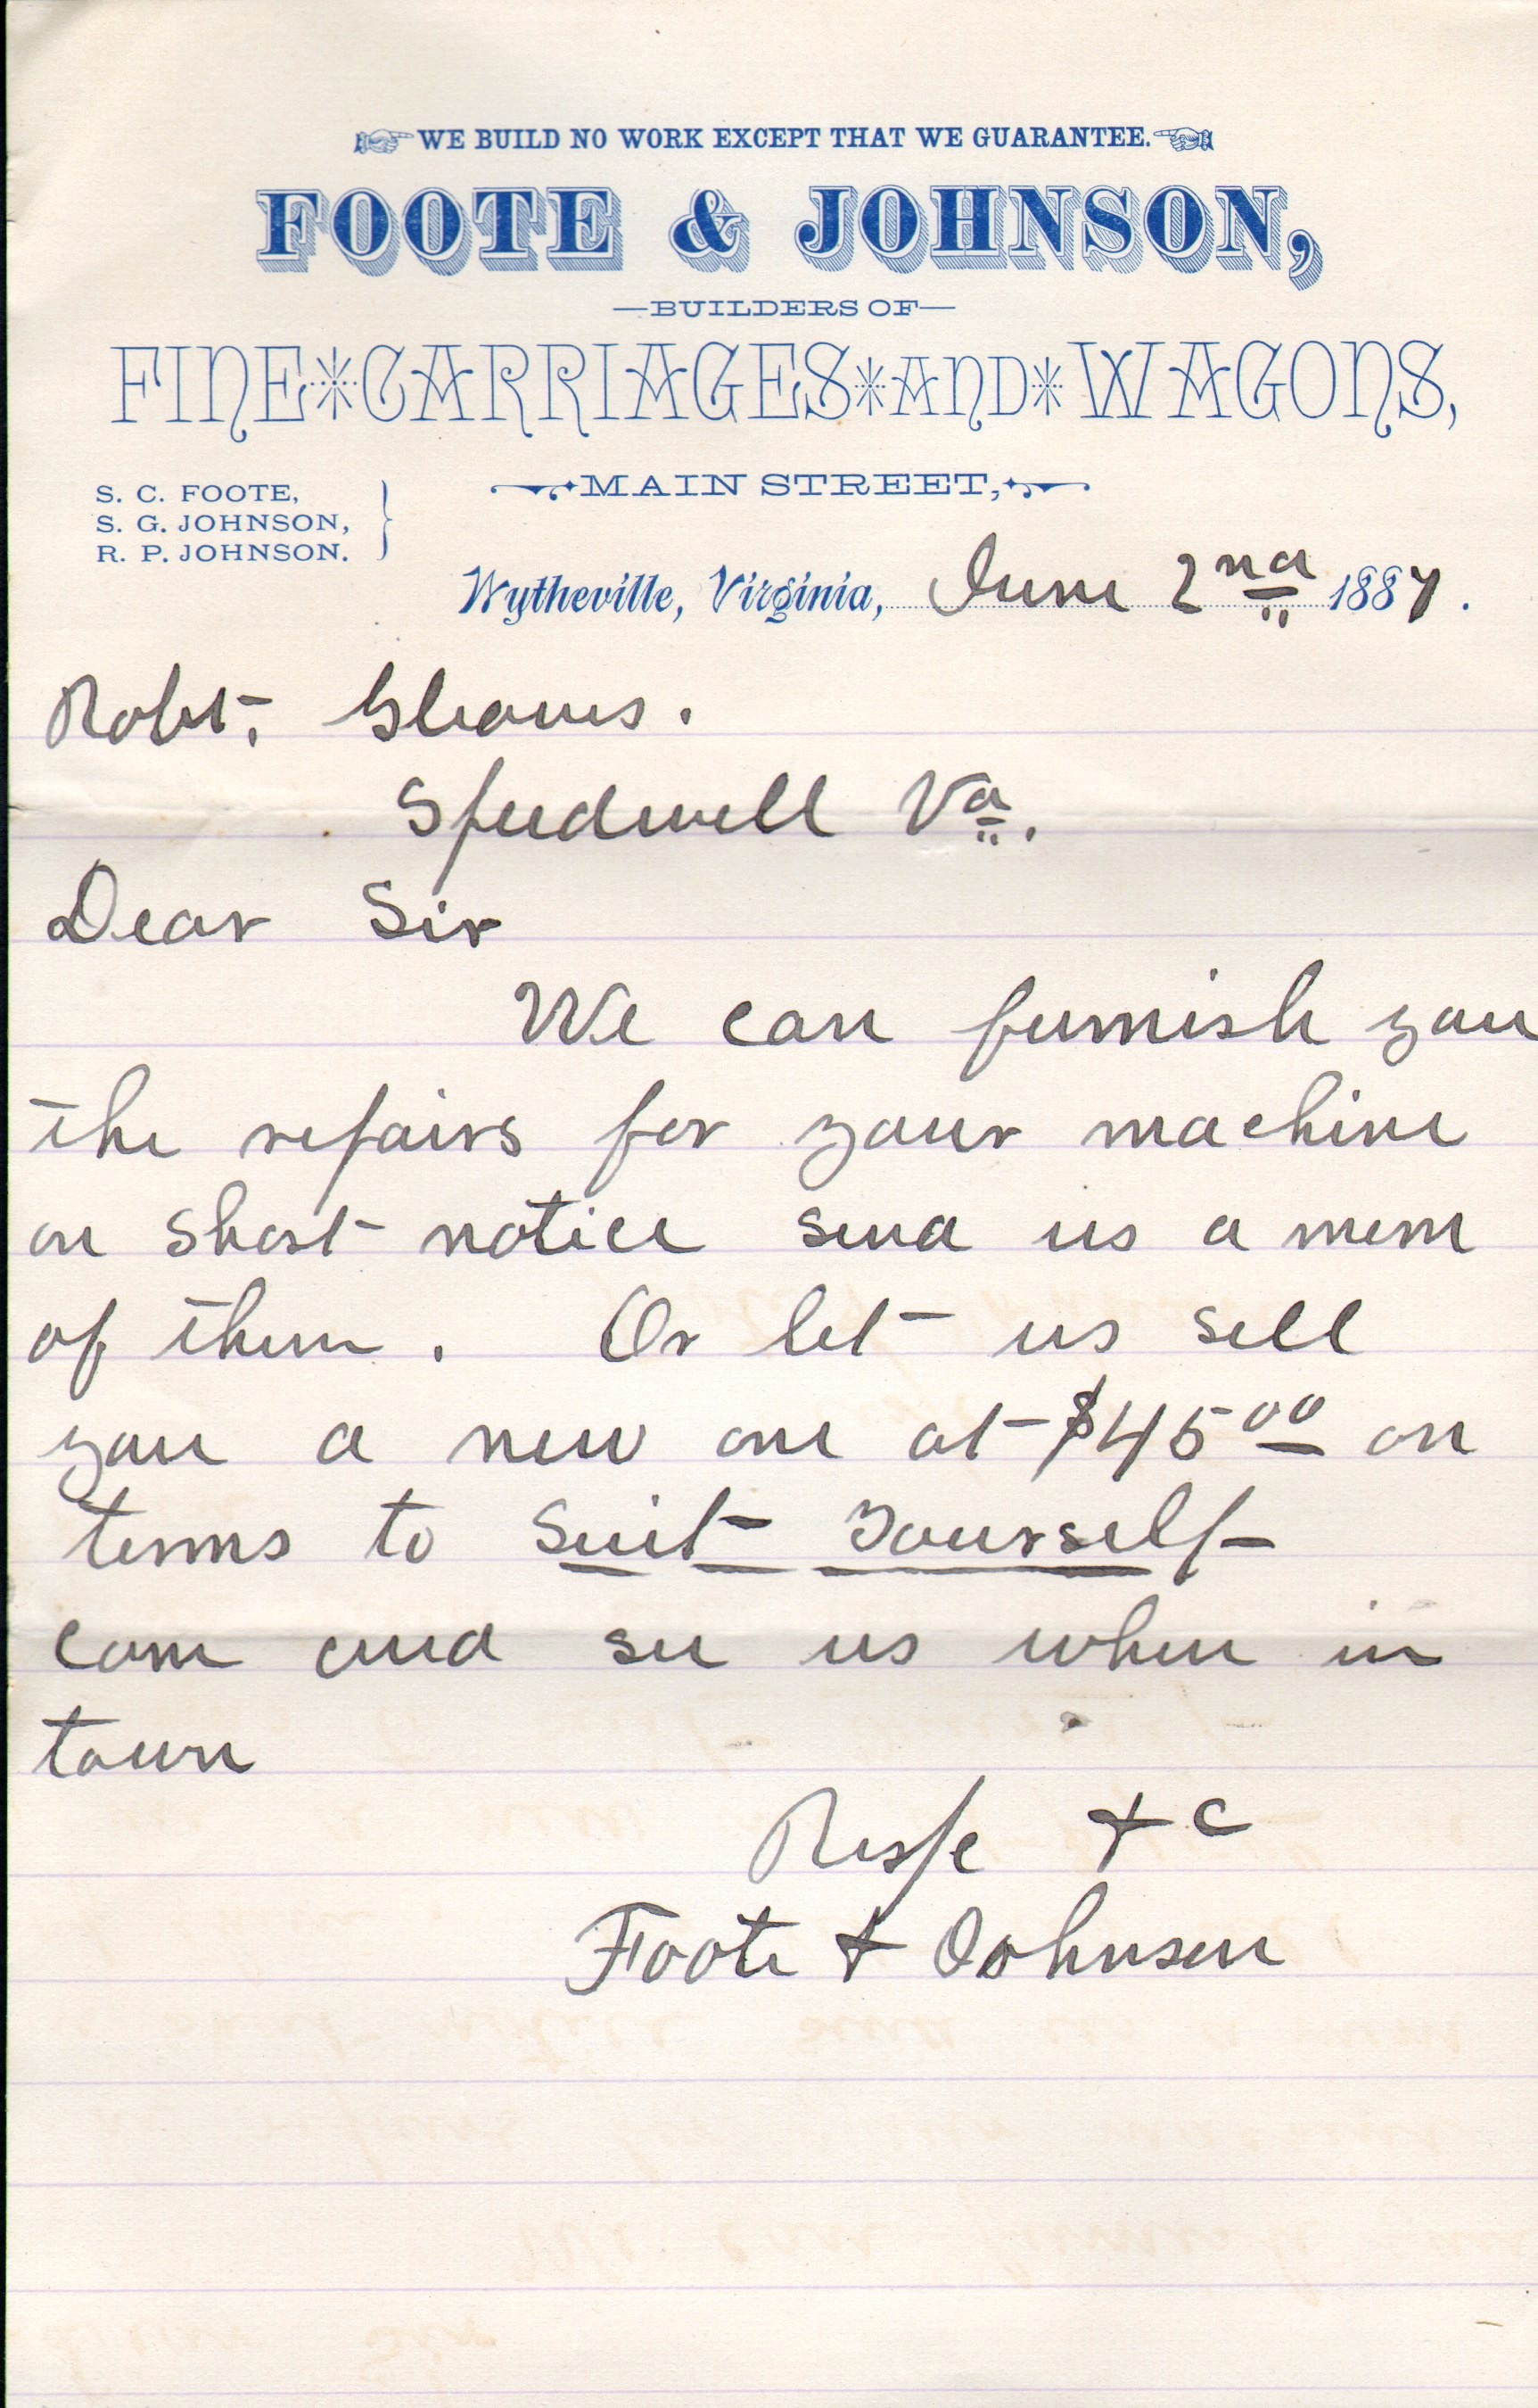 WE BUILD NO WORK EXCEPT THAT WE GUARANTEE.
FOOTE & JOHNSON,
—BUILDERS OF—
FINE * CARRIAGES * AND * WAGONS,
MAIN STREET,
S. C. FOOTE,
S. G. JOHNSON,
R. P. JOHNSON.
Wytheville, Virginia, June 2nd 1887.
Robt.
Speedwell Va.
Dear Sir
We can furnish you
the repairs for your machine
on short notice send us a mem
of them. Or let us sell
you a new one at $45 00 on
terms to suit yourself
come and see us when in
town
Resp &c
Foote & Johnson